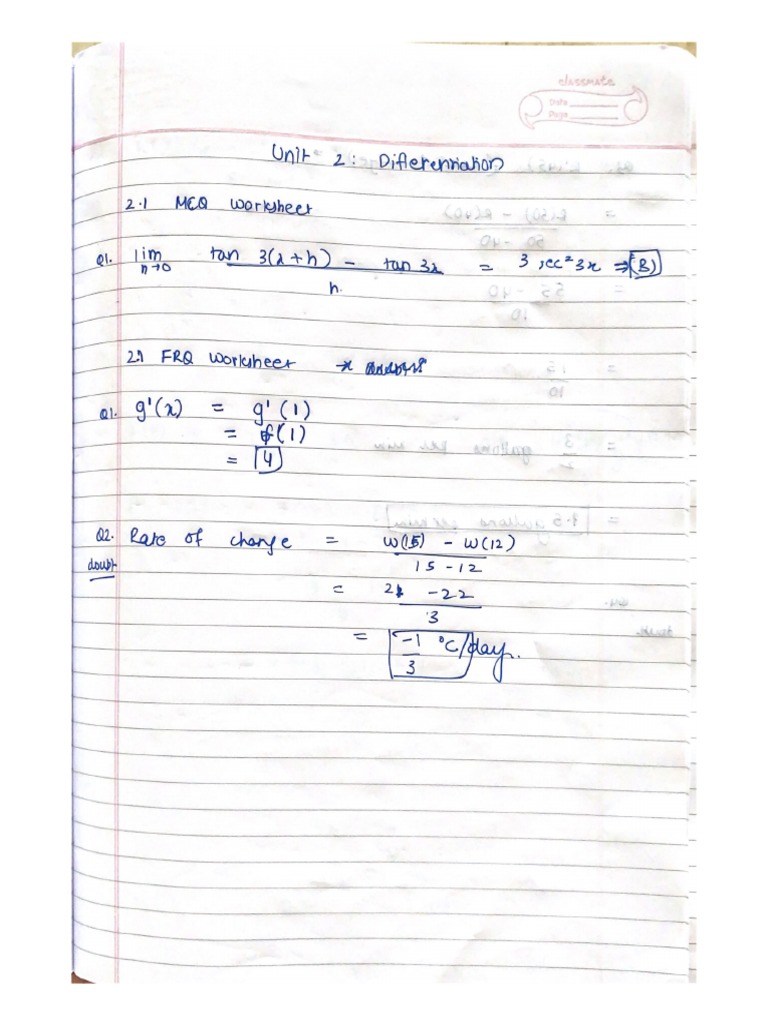 classmate
Date
Page
Unit 2: Differentiation
2.1 MCQ Worksheet
Q1. lim h→0 tan 3(x+h) - tan 3x / h. = 3 sec² 3x ⇒ (B)
2.1 FRQ Worksheet →
Q1. g'(x) = g'(1)
= f(1)
= 4
Q2. Rate of change = W(15) - W(12) / 15-12
doubt
= 21 - 22 / 3
= -1/3 °C/day.